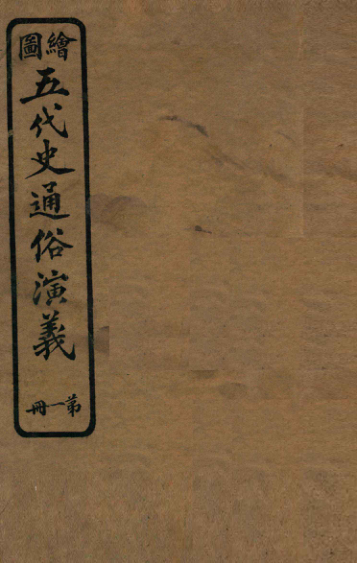 繪圖
五代史通俗演義
苐一冊